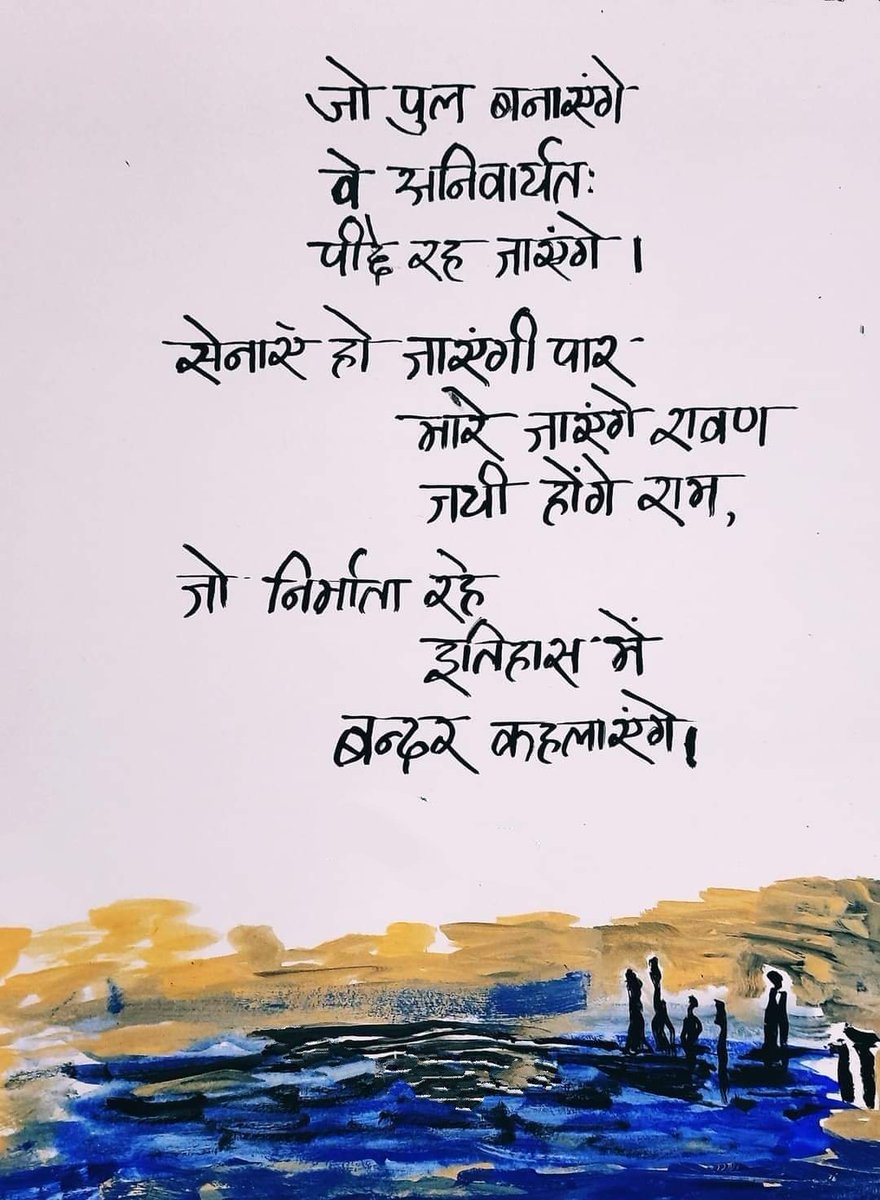 जो पुल बनाएंगे
वे अनिवार्यतः
पीछे रह जाएंगे।
सेनाएं हो जाएंगी पार
मारे जाएंगे रावण
जयी होंगे राम,
जो निर्माता रहे
इतिहास में
बन्दर कहलाएंगे।